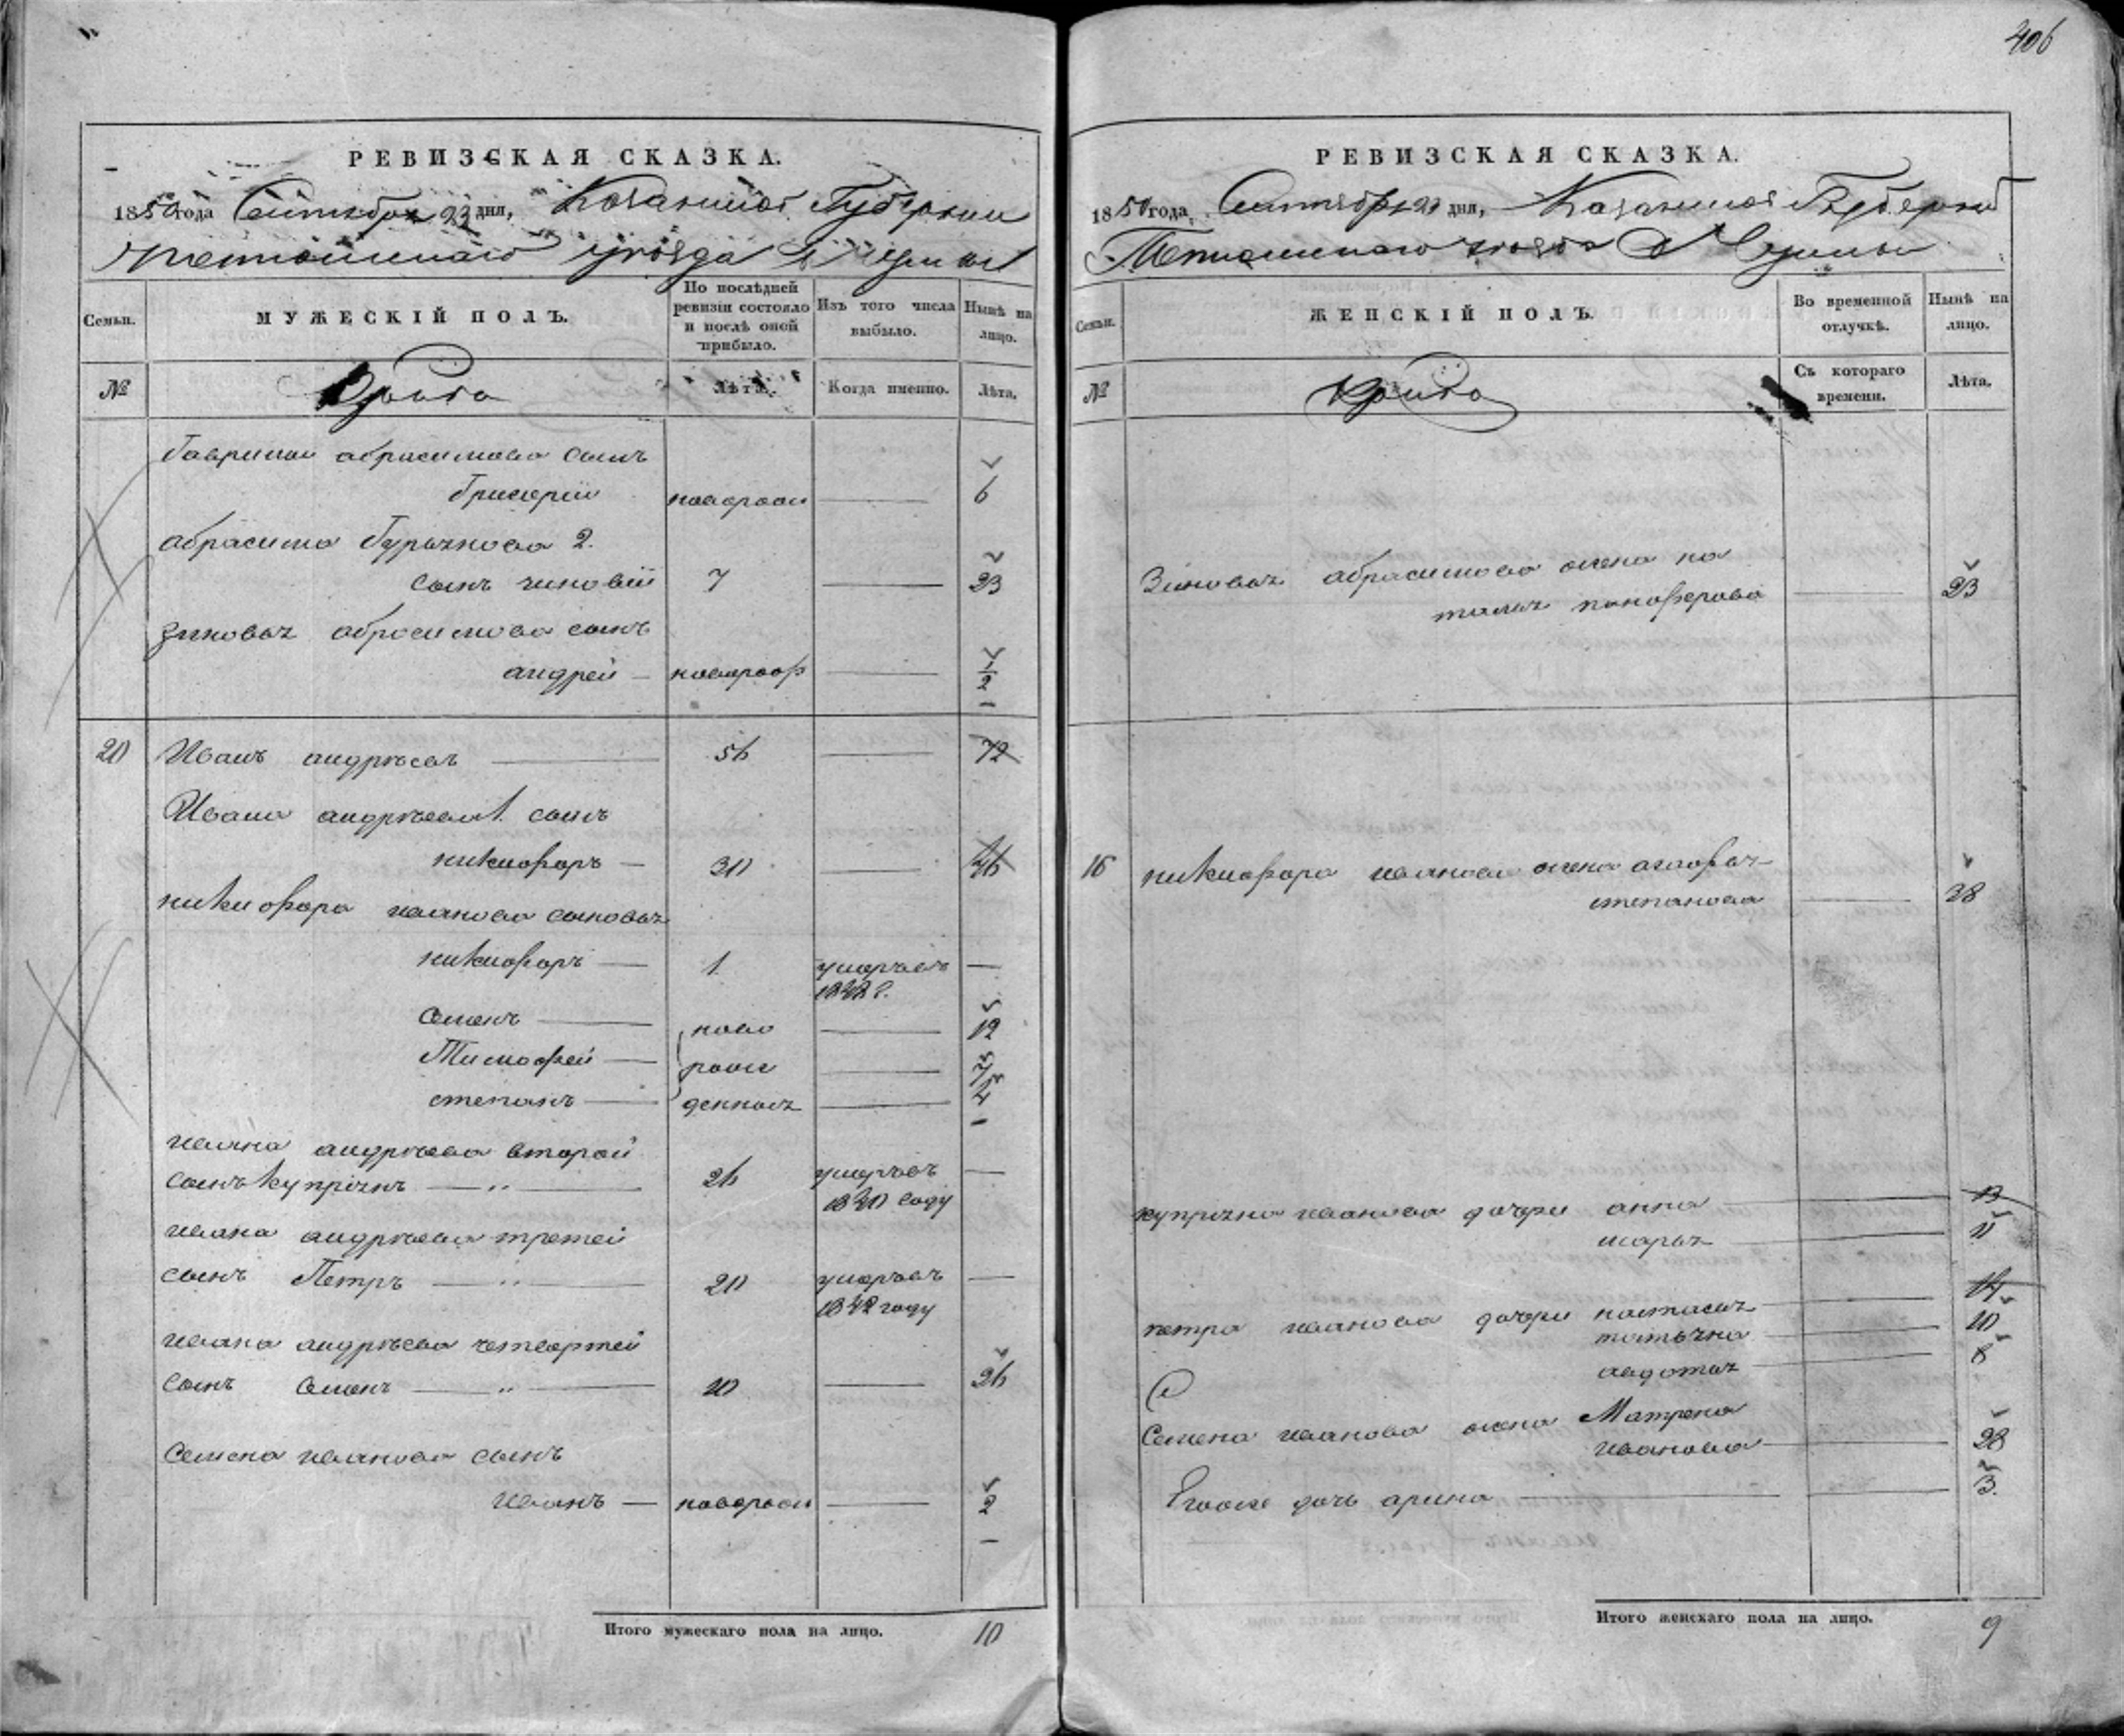 406
РЕВИЗСКАЯ СКАЗКА.
1850 года Сентября 23 дня, Казанской Губернии
уѣзда
Семьи.
МУЖЕСКІЙ ПОЛЪ.
По послѣдней ревизіи состояло и послѣ оной прибыло.
Изъ того числа выбыло.
Нынѣ на лицо.
№
Лѣта.
Когда именно.
Лѣта.
абрасимова сынъ
Григорій 6
абрасима 2.
сынъ зиновій 7 23
абросимова сынъ
андрей 1/2
20 Иванъ андрѣевъ 56 72
Ивана андрѣева 1. сынъ
никифоръ 30 46
никифора иванова сыновья
никифоръ 1 умеръ
Семенъ ново 12
Тимофей рож 7
степанъ денныя 4
ивана андрѣева второй
сынъ купріянъ 26 умеръ
1840 году
ивана андрѣева третей
сынъ Петръ 20 умеръ
1842 году
ивана андрѣева четвертей
сынъ Семенъ 10 26
Семена иванова сынъ
иванъ 2
Итого мужескаго пола на лицо. 10
РЕВИЗСКАЯ СКАЗКА.
1850 года, Сентября 23 дня, Казанской Губерній
Тетюшскаго уѣзда
Семьи.
ЖЕНСКІЙ ПОЛЪ.
Во временной отлучкѣ.
Нынѣ на лицо.
№
Съ котораго времени.
Лѣта.
Зиновья абрасимова жена на
талья панферова 23
16 никифора иванова жена агафья
степанова 38
купріяна иванова дочери анна 13
марья 11
петра иванова дочери настасья 14
татьяна 10
авдотья 8
Семена иванова жена Матрена
иванова 28
Егоже дочь арина 3.
Итого женскаго пола на лицо. 9